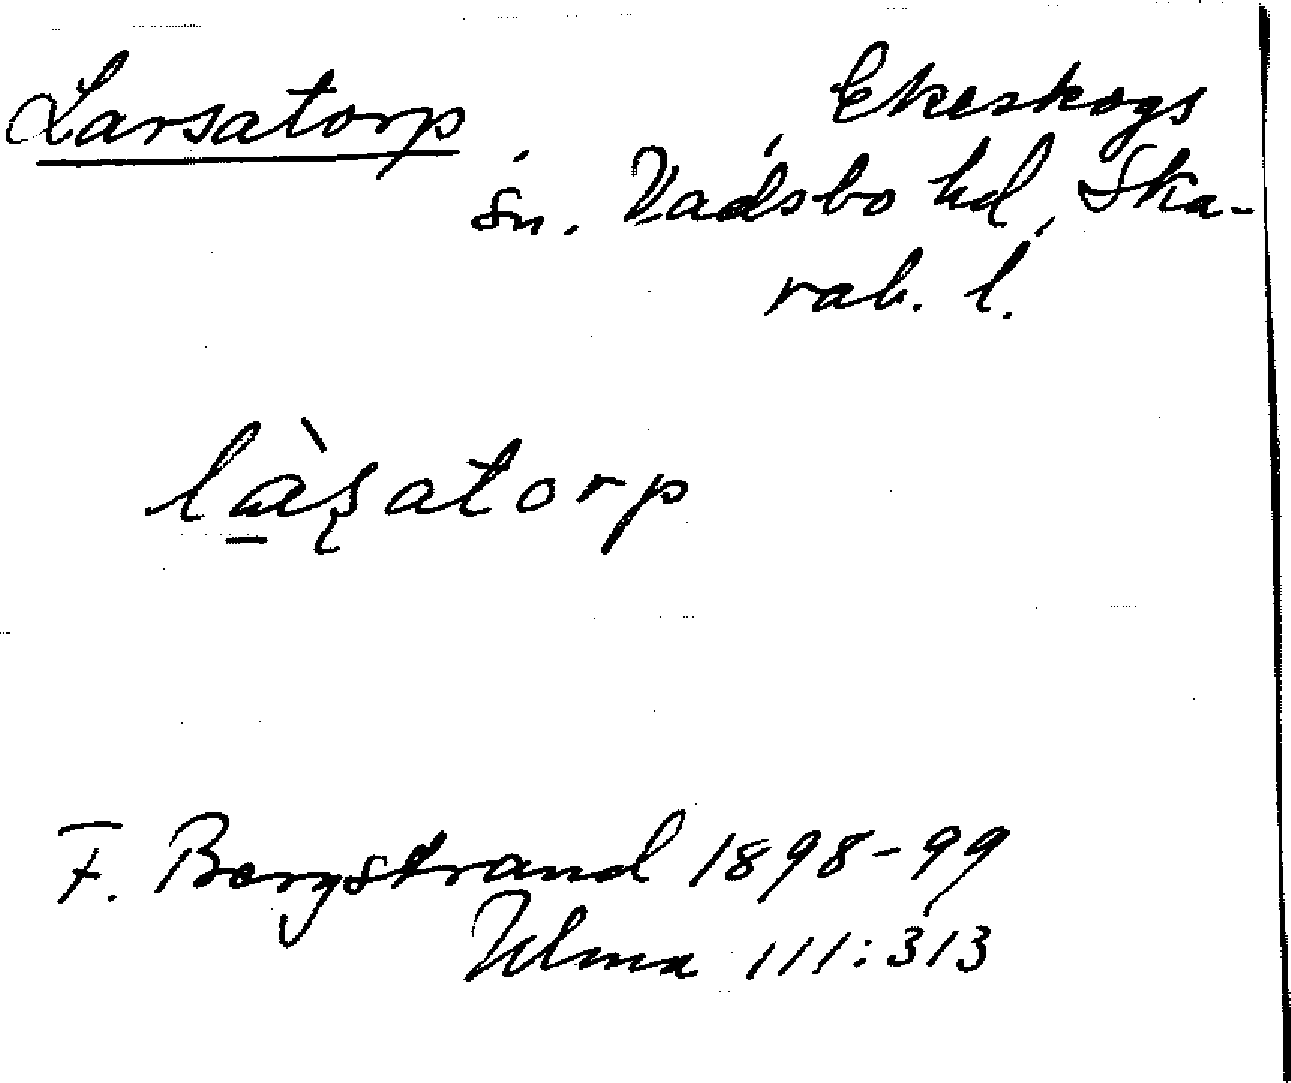 Larsatorp Ekeskogs
sn. Vadsbo hd, Ska-
rab. l.
là̱ʂatorp
F. Bergstrand 1898-99
Ulma 111:313